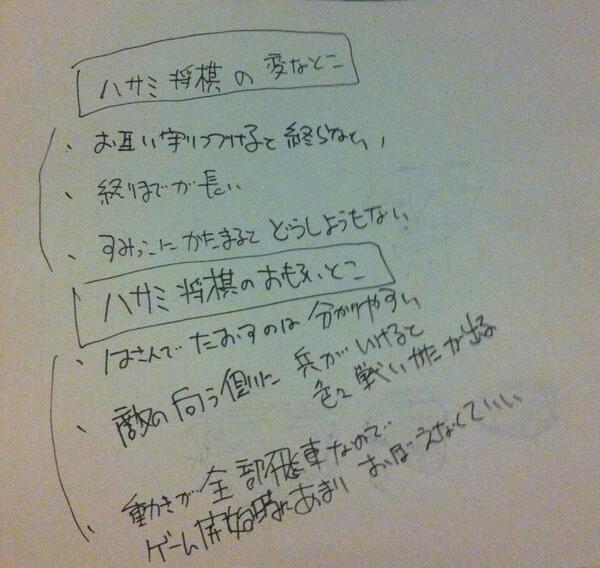 ハサミ将棋の変なとこ
、お互い守りつづけると終らない、
、終りまでが長い
、すみっこにかたまるとどうしようもない
ハサミ将棋のおもろいとこ
、はさんでたおすのは分かりやすい
、敵の向う側に兵がいけると
色々戦いかたが出る
、動きが全部飛車なので
ゲーム開始時にあまりおぼえなくていい